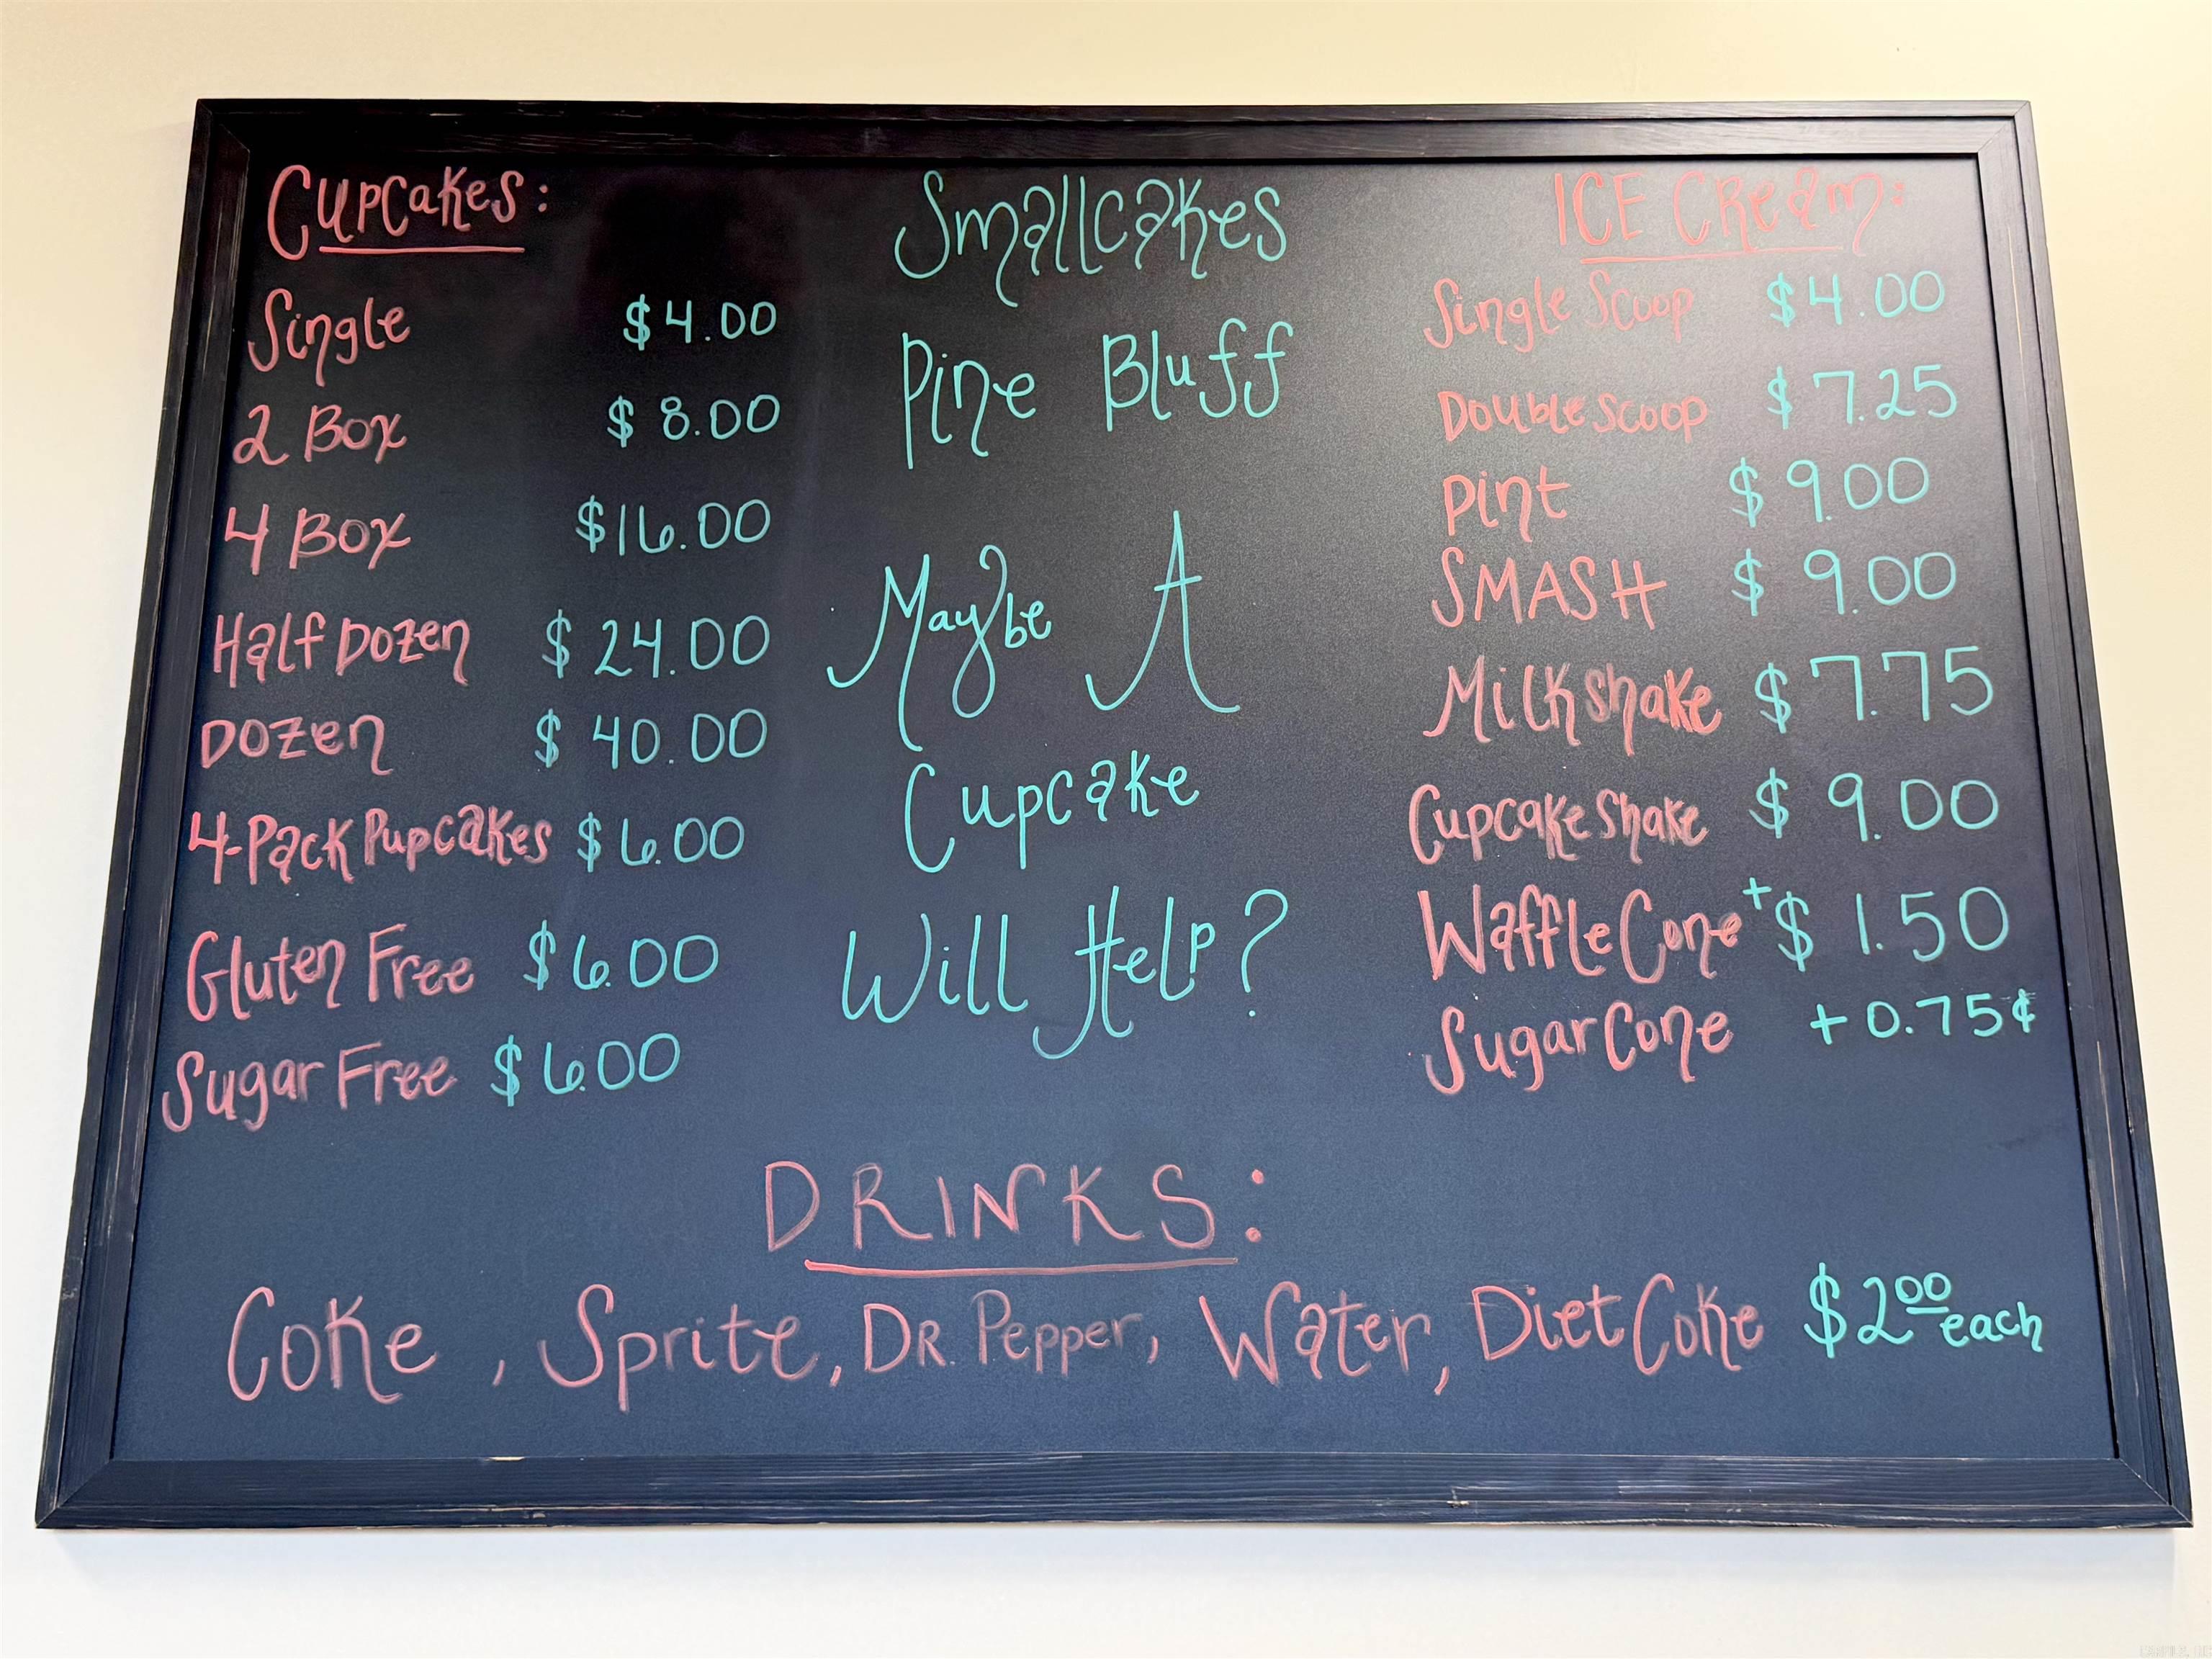 Cupcakes:
Single $4.00
2 Box $8.00
4 Box $16.00
Half Dozen $24.00
Dozen $40.00
4-Pack Pupcakes $6.00
Gluten Free $6.00
Sugar Free $6.00
Smallcakes
Pine Bluff
Maybe A
Cupcake
Will Help?
ICE CReam:
Single Scoop $4.00
Double scoop $7.25
pint $9.00
SMASH $9.00
Milkshake $7.75
Cupcake shake $9.00
Waffle Cone +$1.50
Sugar Cone +0.75¢
DRINKS:
Coke, Sprite, DR. Pepper, Water, Diet Coke $2.00 each